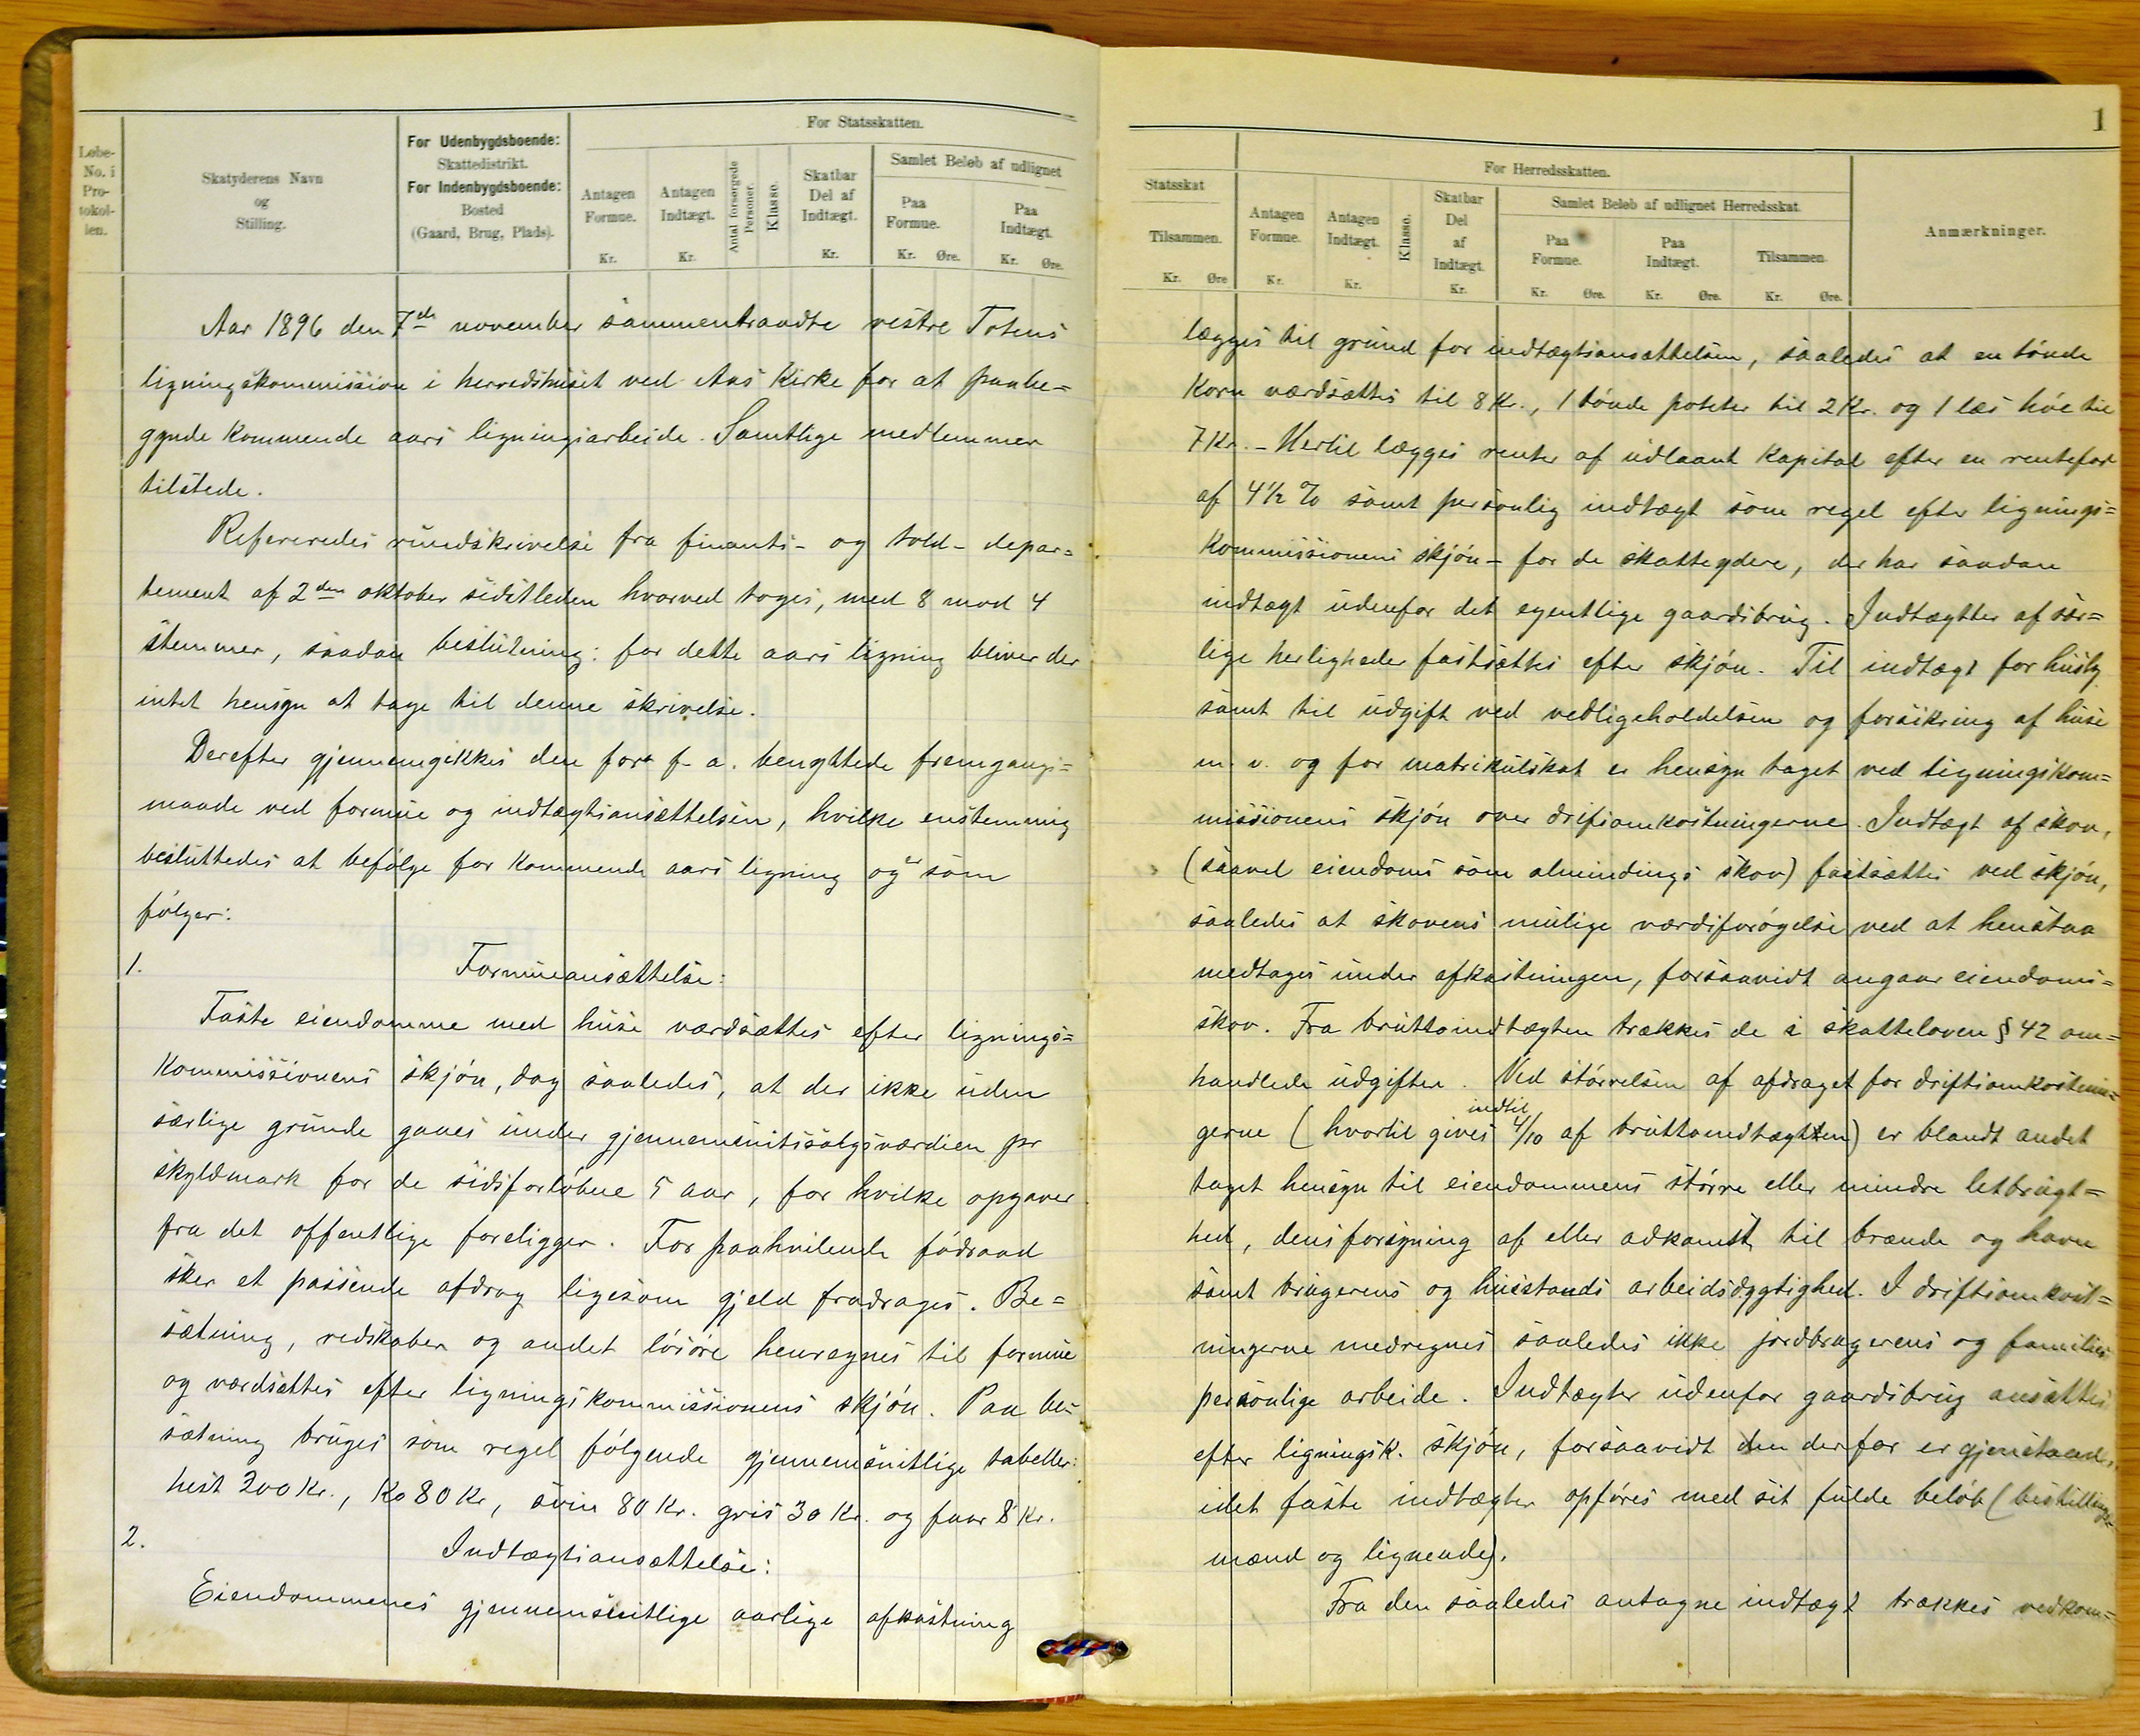 Løbe-
No. i
Pro-
tokol-
len.
Skatyderens Navn
og
Stilling.
For Udenbygdsboende:
Skattedistrikt.
For Indenbygdsboende:
Bosted
(Gaard, Brug, Plads).
For Statsskatten.
Antagen
Formue.
Kr.
Antagen
Indtægt.
Kr.
Antal forsørgede
Personer.
Klasse.
Skatbar
Del af
Indtægt.
Kr.
Samlet Beløb af udlignet
Paa
Formue.
Kr. Øre.
Paa
Indtægt.
Kr. Øre.
Aar 1896 den 7de november sammentraadte vestre Totens
ligningskommission i herredshuset ved Aas Kirke for at paabe=
gynde kommende aars ligningsarbeide. Samtlige medlemmer
tilstede.
Refereredes rundskrivelse fra finants- og told- depar=
tement af 2den oktober sidstleden hvorved toges, med 8 mod 4
stemmer, saadan beslutning: for dette aars ligning bliver der
intet hensyn at tage til denne skrivelse.
Derefter gjennemgikkes den for f. a. benyttede fremgangs=
maade ved formue og indtægtsansættelsen, hvilke enstemmig
besluttedes at befølge for kommende aars ligning og er som
følger:
1. Formueansættelse:
Faste eiendomme med huse værdsættes efter lignings=
kommissionens skjøn, dog saaledes, at der ikke uden
særlige grunde gaaes under gjennemsnitssalgsværdien pr
skyldmark for de sidsforløbne 5 aar, for hvilke opgaver
fra det offentlige foreligger. For paahvilende födraad
sker et passende afdrag ligesom gjeld fradrages. Be=
sætning, redskaber og andet løsøre henregnes til formue
og værdsættes efter ligningskommissionens skjøn. Paa be=
sætning bruges som regel følgende gjennemsnitlige tabeller:
hest 200 Kr., Ko 80 Kr, svin 80 Kr. gris 30 Kr. og faar 8 Kr.
2. Indtægtsansættelse:
Eiendommenes gjennemsnitlige aarlige afkastning
1
Statsskat
Tilsammen.
Kr. Øre
For Herredsskatten.
Antagen
Formue.
Kr.
Antagen
Indtægt.
Kr.
Klasse.
Skatbar
Del
af
Indtægt.
Kr.
Samlet Beløb af udlignet Herredsskat.
Paa
Formue.
Kr. Øre.
Paa
Indtægt.
Kr. Øre.
Tilsammen.
Kr. Øre.
Anmærkninger.
lægges til grund for indtægtsansættelsen, saaledes at en tønde
Korn værdsættes til 8 Kr., 1 tønde poteter til 2 Kr. og 1 læs høe til
7 Kr. - Hertil lægges renter af udlaant Kapital efter en rentefod
af 4½ % samt personlig indtægt som regel efter lignings=
Kommissionens skjøn - for de skatteydere, der har saadan
indtægt udenfor det egentlige gaardsbrug. Indtægter af sær=
lige herligheder fastsættes efter skjøn. Til indtægt for husly
samt til udgift ved vedligeholdelsen og forsikring af huse
m. v. og for matrikulskat er hensyn taget ved ligningskom=
missionens skjøn over driftsomkostningerne. Indtægt af skov,
(saavel eiendoms som almindings skov) fastsættes ved skjøn,
saaledes at skovens mulige værdiforøgelse ved at henstaa
medtages under afkastningen, forsaavidt angaar eiendoms=
skov. Fra bruttoindtægten trækkes de i skatteloven § 42 om=
handlede udgifter. Ved størrelsen af afdraget for driftsomkostnin=
gerne (hvortil gives indtil 4/10 af bruttoindtægten) er blandt andet
taget hensyn til eiendommens større eller mindre letbrugt=
hed, dens forsyning af eller adkomst til brænde og havn
samt brugerens og husstands arbeidsdygtighed. I driftsomkost=
ningerne medregnes saaledes ikke jordbrugerens og families
personlige arbeide. Indtægter udenfor gaardsbrug ansættes
efter ligningsk. skjøn, forsaavidt den derfor er gjenstand,
idet faste indtægter opføres med sit fulde beløb (bestillings=
mænd og lignende).
Fra den saaledes antagne indtægt trækkes vedkom=